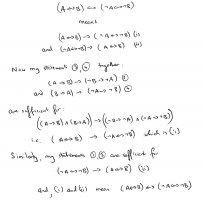 (A⇔B) ⇔ (¬A⇔¬B)
means
(A⇔B) → (¬A⇔¬B) (i)
and (¬A⇔¬B) → (A⇔B) (ii)
Now my statements ③ ④ together:
(A→B) → (¬B→¬A) ③
(B→A) → (¬A→¬B) ④
are sufficient for:
((A→B)∧(B→A)) → ((¬B→¬A)∧(¬A→¬B))
i.e. (A⇔B) → (¬A⇔¬B) which is (i)
Similarly, my statements ① ② are sufficient for
(¬A⇔¬B) → (A⇔B) (ii)
and, (i) and (ii) mean (A⇔B) ⇔ (¬A⇔¬B)